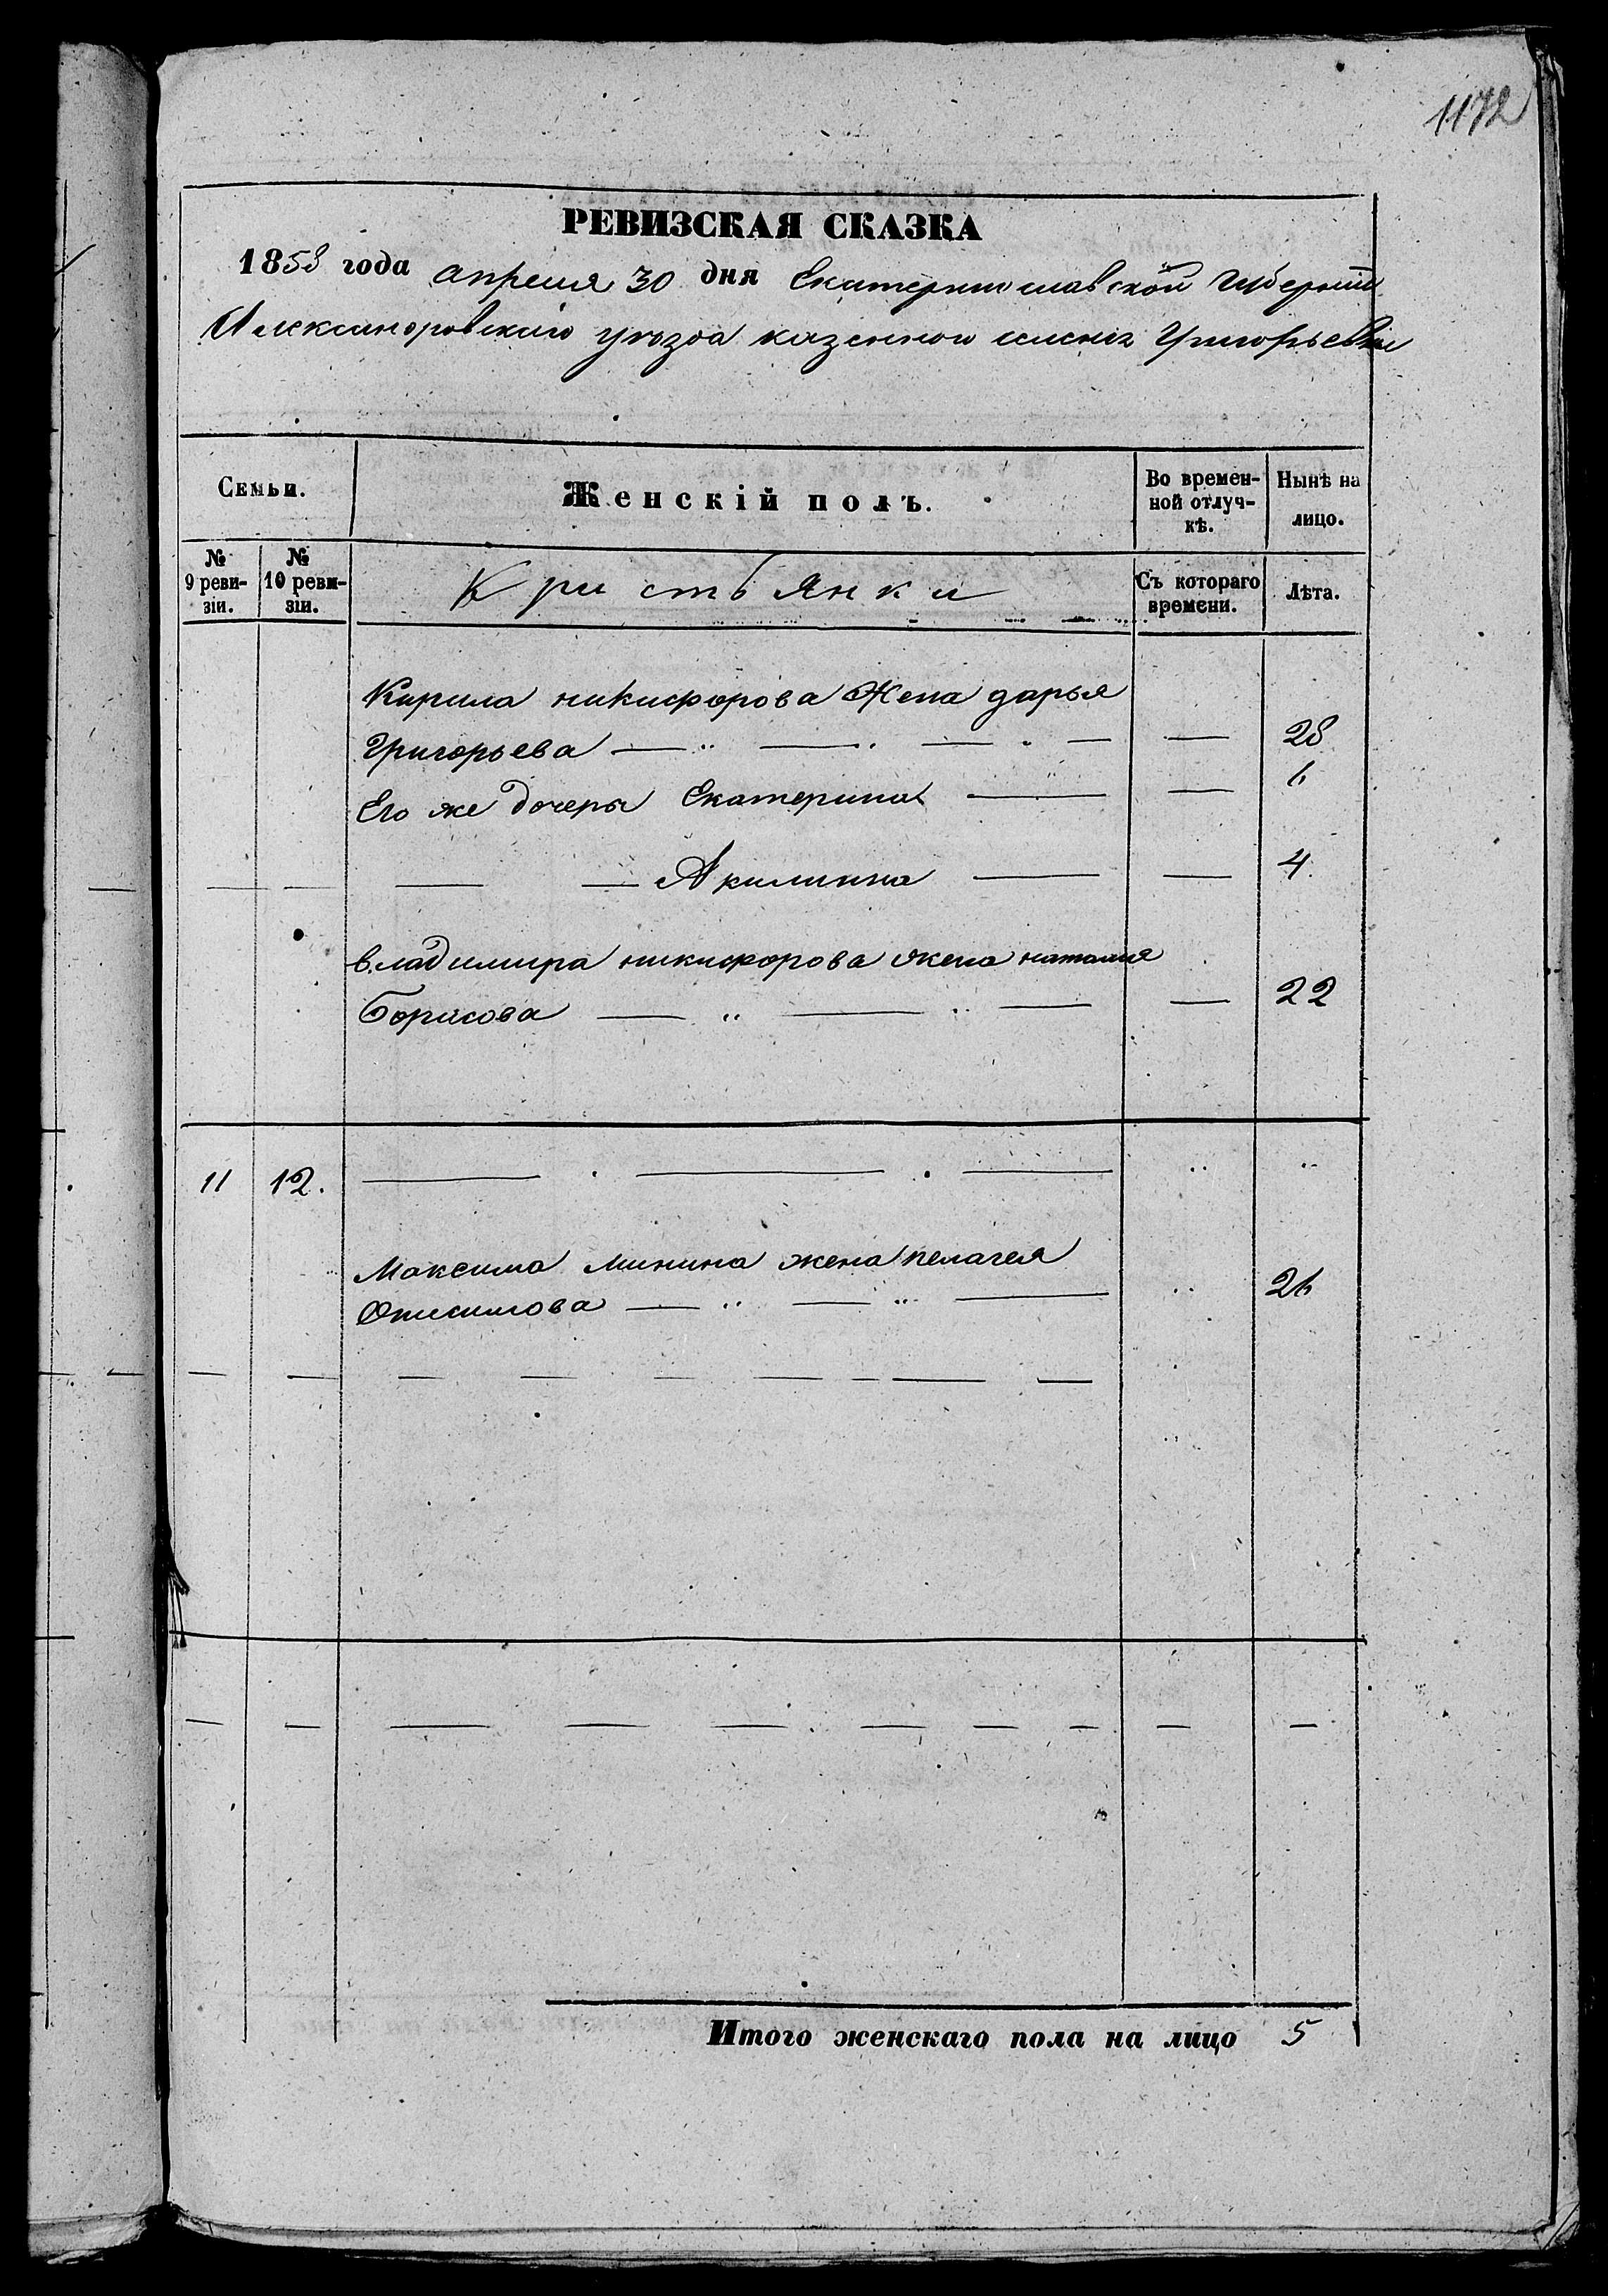 1172
РЕВИЗСКАЯ СКАЗКА
1858 года апреля 30 дня Екатеринославской Губернии
Александровскаго уѣзда казенной селенія Григорьевки
Семьи.
Женскій полъ.
Во времен-
ной отлуч-
кѣ.
Нынѣ на
лицо.
№
9 реви-
зіи.
№
10 реви-
зіи.
Кристьянки
Съ котораго
времени.
Лѣта.
Кирила никифорова Жена дарья
Григорьева — „ — „ — „ — — 28
Его же дочеры Екатерина — — 6
— — Акилинна — — 4.
владимира никифорова жена наталия
Борисова — „ — „ — — 22
11 12. — . — . — „ „
Максима Минина жена пелагея
Онисимова — „ — „ — „ 26
Итого женскаго пола на лицо 5